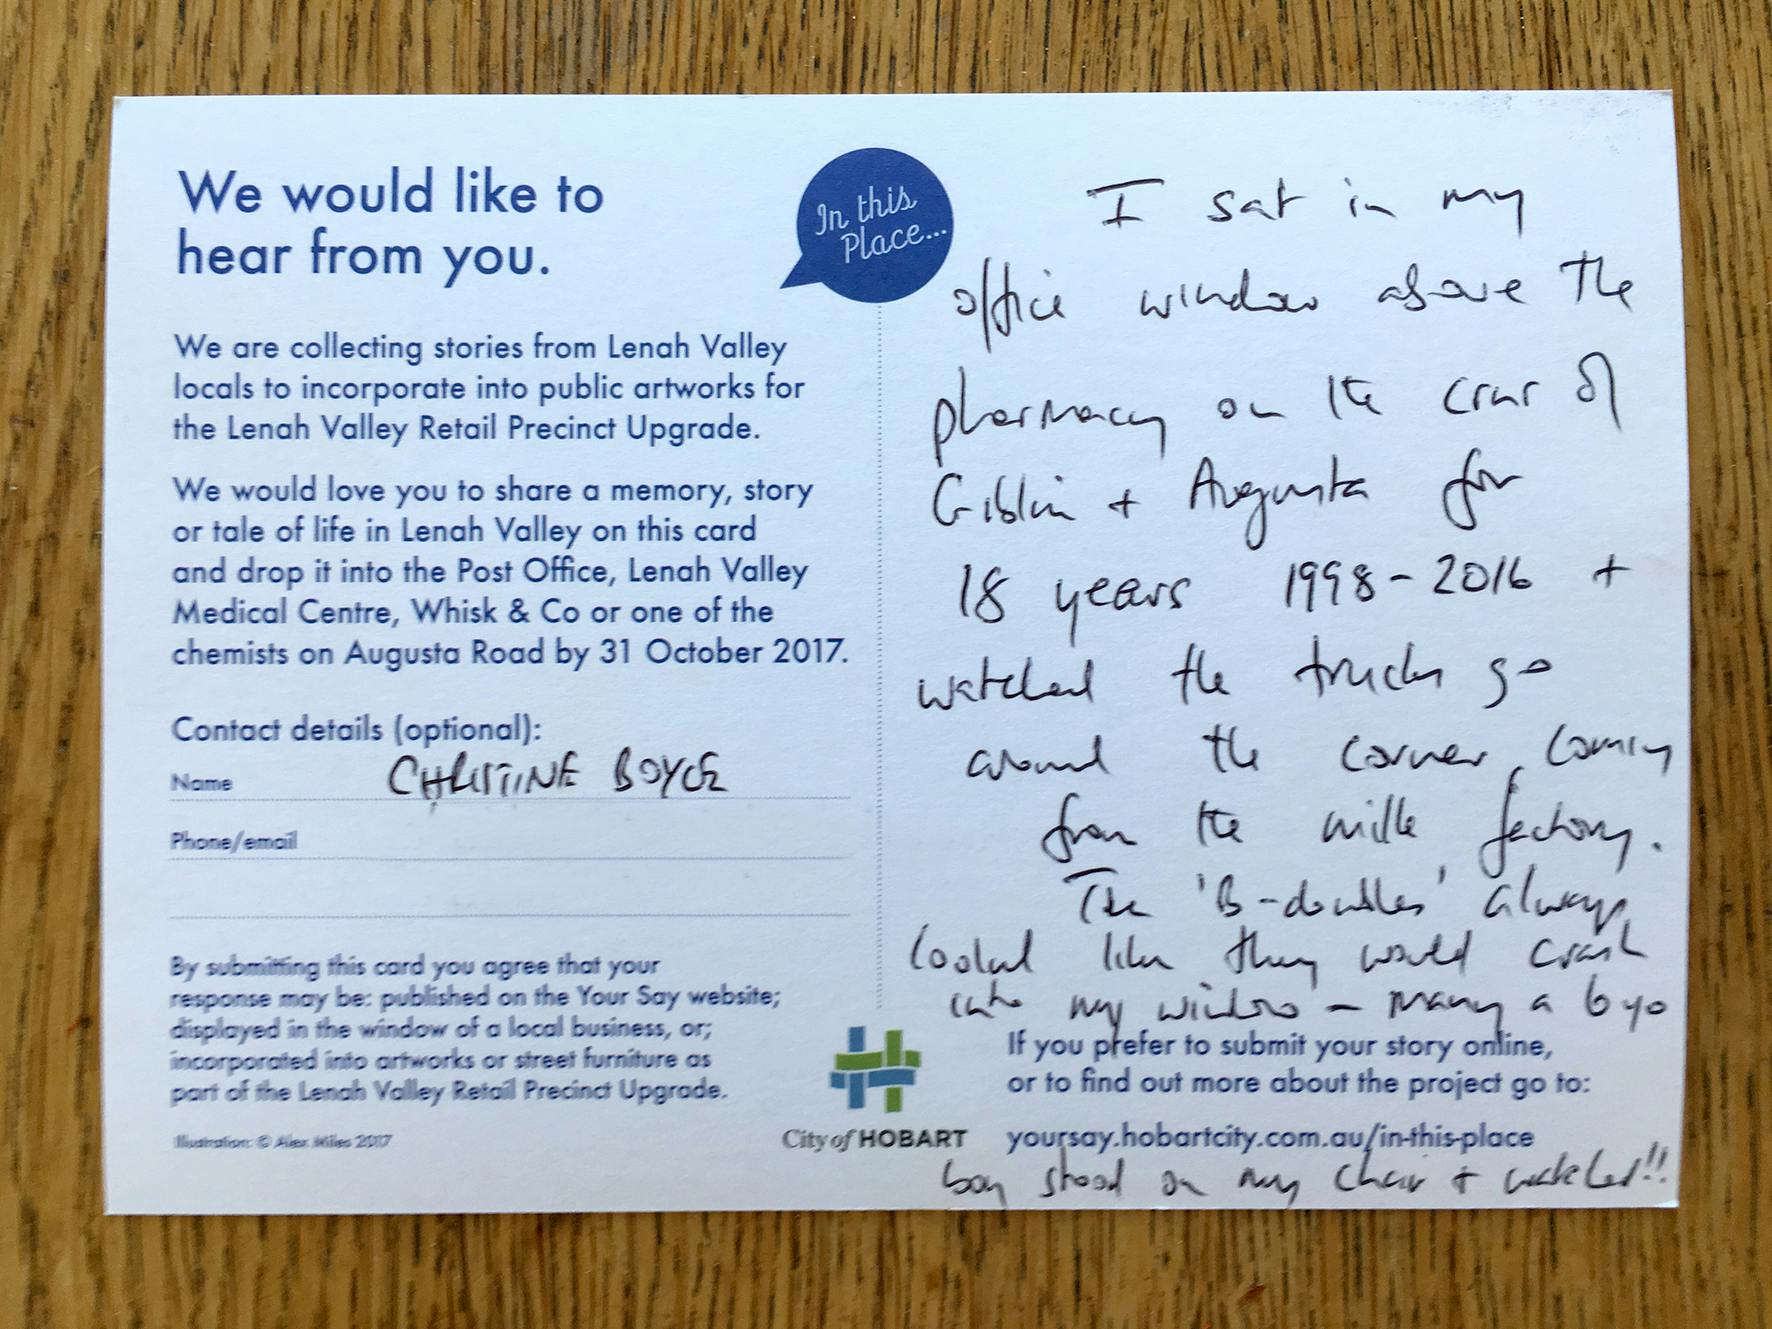 We would like to
hear from you.
In this
Place...
We are collecting stories from Lenah Valley
locals to incorporate into public artworks for
the Lenah Valley Retail Precinct Upgrade.
We would love you to share a memory, story
or tale of life in Lenah Valley on this card
and drop it into the Post Office, Lenah Valley
Medical Centre, Whisk & Co or one of the
chemists on Augusta Road by 31 October 2017.
Contact details (optional):
Name CHRISTINE BOYCE
Phone/email
By submitting this card you agree that your
response may be: published on the Your Say website;
displayed in the window of a local business, or;
incorporated into artworks or street furniture as
part of the Lenah Valley Retail Precinct Upgrade.
Illustration: © Alex Miles 2017
City of HOBART
I sat in my
office window above the
pharmacy on the crnr of
Giblin + Augusta for
18 years 1998-2016 +
watched the trucks go
around the corner coming
from the milk factory.
The 'B-doubles' always
looked like they would crash
into my window - many a 6 yo
If you prefer to submit your story online,
or to find out more about the project go to:
yoursay.hobartcity.com.au/in-this-place
boy stood on my chair + watched!!